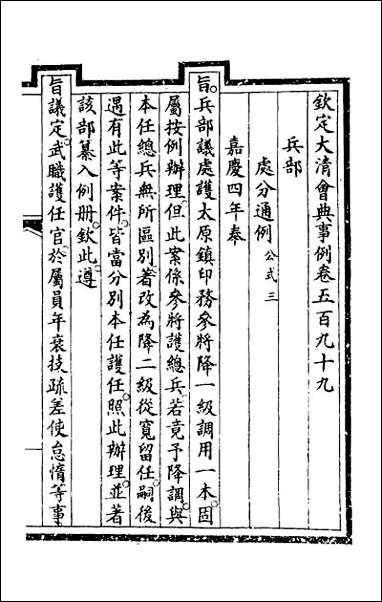 欽定大清會典事例卷五百九十九
兵部
處分通例公式三
嘉慶四年奉
旨兵部議處護太原鎮印務參將降一級調用一本固
屬按例辦理但此案係參將護總兵若竟予降調與
本任總兵無所區別著改為降二級從寬留任嗣後
遇有此等案件皆當分別本任護任照此辦理並著
該部纂入例冊欽此遵
旨議定武職護任官於屬員年衰技疏差使怠惰等事